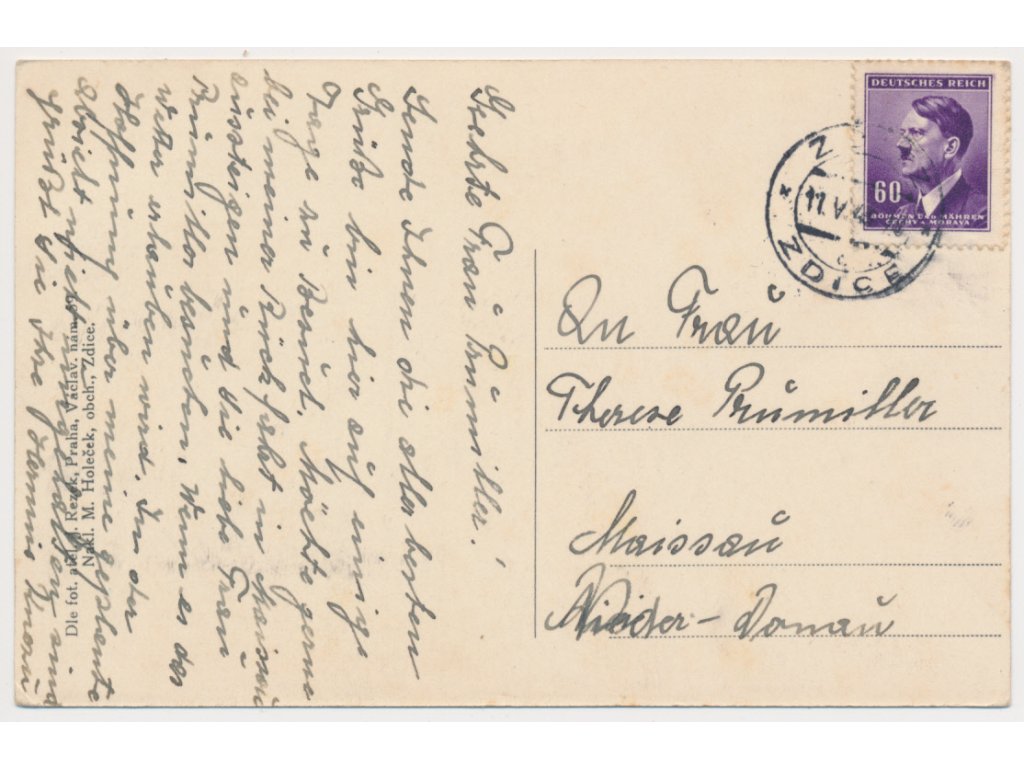 Geehrte Frau Prumiller!
Sende Ihnen die allerbesten
Grüße bin hier auf einige
Tage zu Besuch. Möchte gerne
bei meiner Rückfahrt in Maissau
aussteigen und Sie liebe Frau
Prumiller besuchen. Wenn es das
Wetter erlauben wird. In der
Hoffnung über meine geplante
Absicht nicht
grüßt Sie Ihre Hermine
Dle fot. atel. J. Rezek, Praha, Václav. nám.
Nákl. M. Holeček, obch., Zdice.
DEUTSCHES REICH
60
BÖHMEN UND MÄHREN
ČECHY A MORAVA
ZDICE
11.V.4
An Frau
Therese Prŭmiller
Maissaŭ
Nieder-Donaŭ